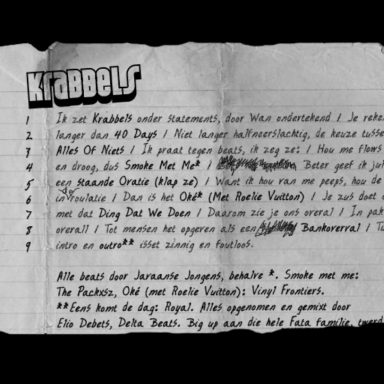 Krabbels
1 Ik zet Krabbels onder statements, door Wan ondertekend / Je reke
2 langer dan 40 Days / Niet langer halfneerslachtig, de keuze tusse
3 Alles Of Niets / Ik praat tegen beats, ik zeg ze: / Hou me flows
4 en droog, dus Smoke Met Me* / Beter geef ik jul
5 een staande Oratie (klap ze) / Want ik hou van me peeps, hou de
6 in roulatie / Dan is het Oké* (Met Roelie Vuitton) / Je zus doet o
7 met dat Ding Dat We Doen / Daarom zie je ons overal / In pak
8 overal! / Tot mensen het opgeren als een Bankoverval / Tu
9 intro en outro** isset zinnig en foutloos.
Alle beats door Javaanse Jongens, behalve *. Smoke met me:
The Packxsz, Oké (met Roelie Vuitton): Vinyl Frontiers.
**Eens komt de dag: Royal. Alles opgenomen en gemixt door
Elio Debets, Delta Beats. Big up aan die hele Fata familie, twerd